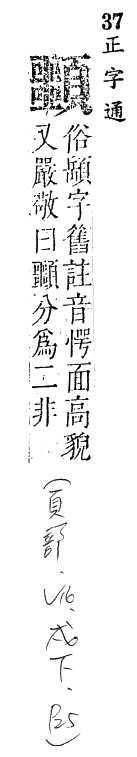 37
正字通
俗字舊註音愕面高貌
又嚴敞曰分爲二非
(頁部.V16.戌下.B5)